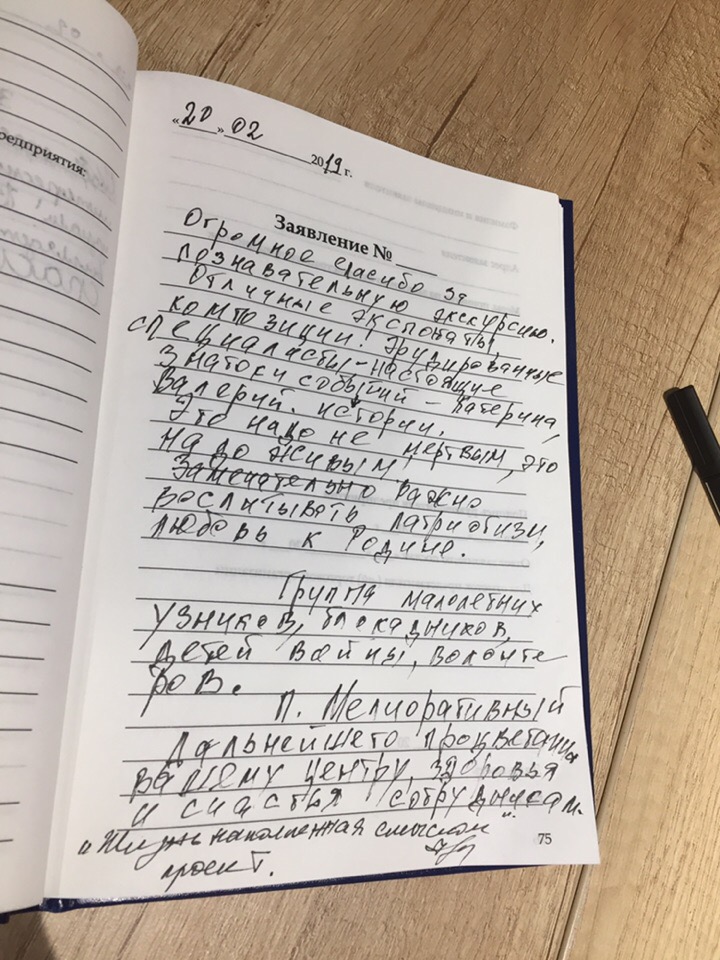 «20» 02 2019 г.
Заявление №
Огромное спасибо за
познавательную экскурсию.
Отличные экспонаты,
композиции! Эрудированные
специалисты – настоящие
знатоки событий – Катерина,
Валерий. истории.
Это надо не мертвым, это
надо живым!
Замечательно важно
воспитывать патриотизм,
любовь к Родине.
Группа малолетних
узников, блокадников,
детей войны, волонте
ров.
П. Мелиоративный
Дальнейшего процветания
вашему центру, здоровья
и счастья сотрудникам.
"Жизнь наполненная смыслом"
проект.
75
едприятия: